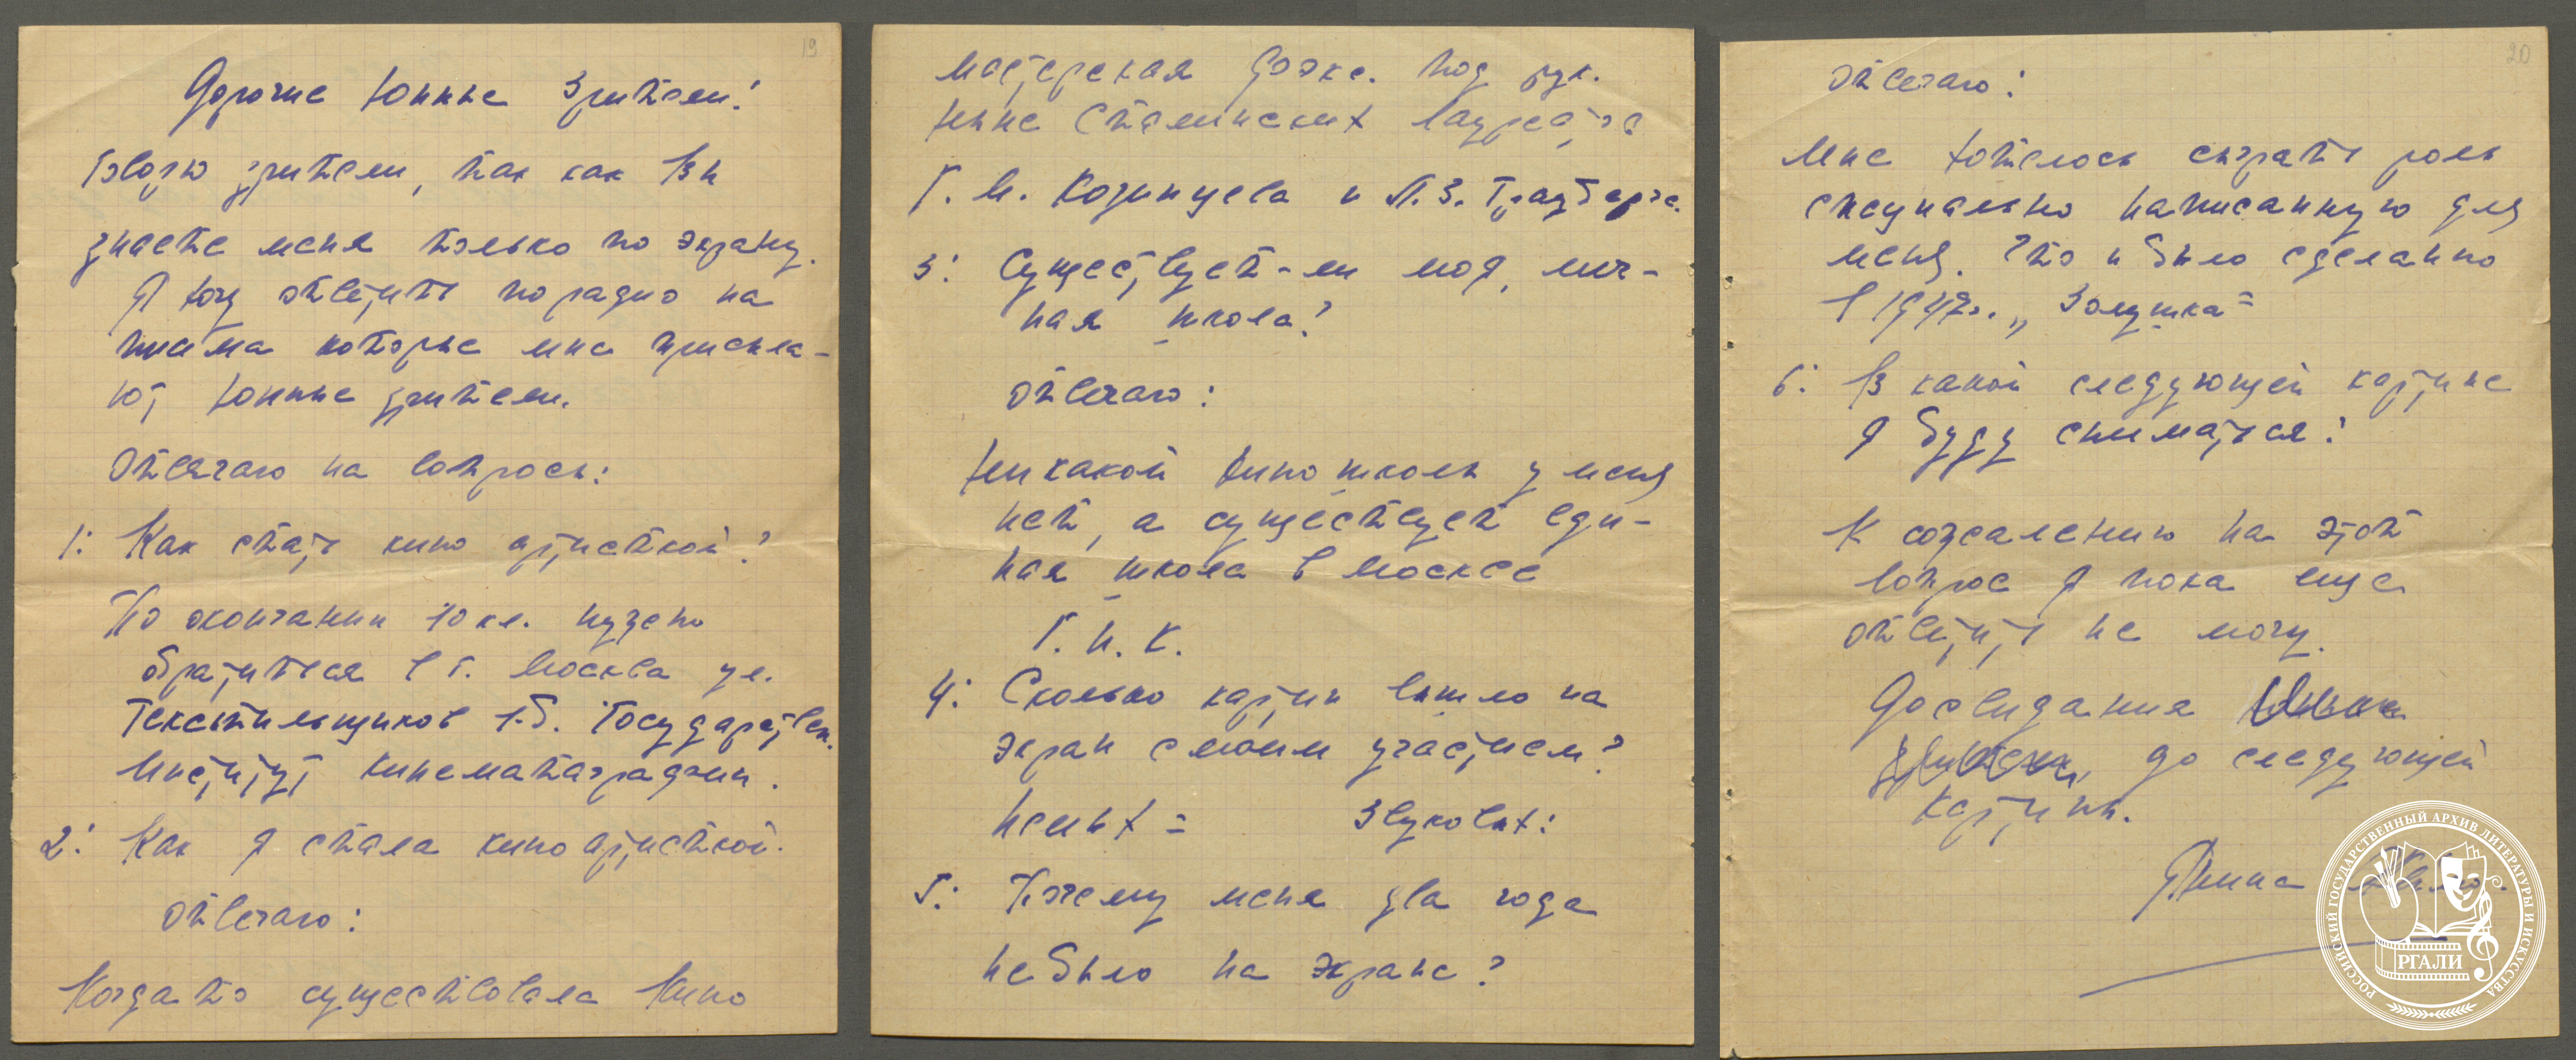 19
Дорогие Юнные Зрители!
Говорю зрители, так как Вы
знаете меня только по экрану.
Я хочу ответить по радио на
письма которые мне присыла-
ют Юнные зрители.
Отвечаю на вопросы:
1: Как стать кино артисткой?
По окончании 10 кл. нужно
обратиться в г. Москва ул.
Текстильщиков 1-б. Государствен.
Институт кинематаграфии.
2: Как я стала кино артисткой.
Отвечаю:
Когда то существовала Кино
мастерская Фэкс. под рук.
ныне Сталинских лауреата
Г. М. Козинцева и Л. З. Трауберга.
3: Существует-ли моя, лич-
ная школа?
Отвечаю:
Никакой кино школы у меня
нет, а существует еди-
ная школа в Москве
Г. И. К.
4: Сколько картин вышло на
экран с моим участием?
Немых = Звуковых:
5: Почему меня два года
не было на экране?
20
Отвечаю:
Мне хотелось сыграть роль
специально написанную для
меня. Что и было сделанно
в 1947г. „Золушка"
6: В какой следующей картине
я буду сниматься?
К сожалению на этот
вопрос я пока еще
ответить не могу.
Досвидания Юные
зрители, до следующей
картины.
Янина Жеймо.
РОССИЙСКИЙ ГОСУДАРСТВЕННЫЙ АРХИВ ЛИТЕРАТУРЫ И ИСКУССТВА
РГАЛИ